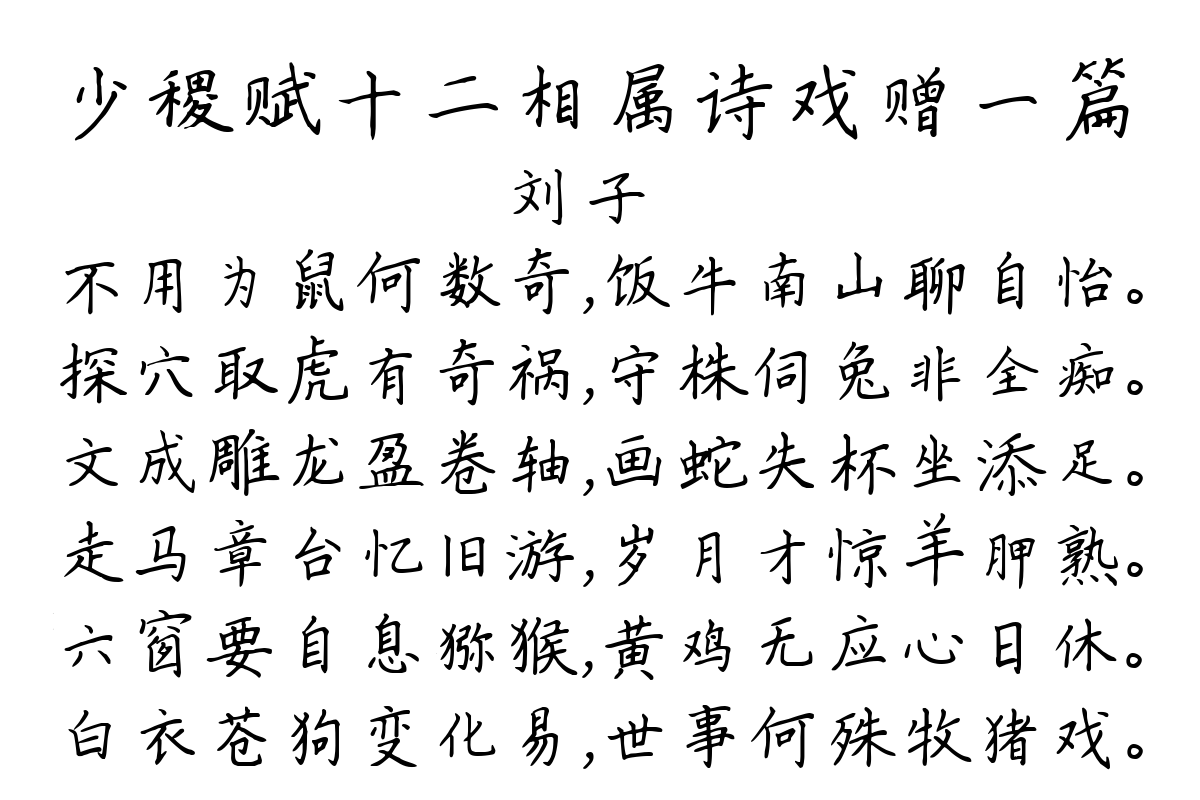 少稷赋十二相属诗戏赠一篇
刘子
不用为鼠何数奇,饭牛南山聊自怡。
探穴取虎有奇祸,守株伺兔非全痴。
文成雕龙盈卷轴,画蛇失杯坐添足。
走马章台忆旧游,岁月才惊羊胛熟。
六窗要自息猕猴,黄鸡无应心日休。
白衣苍狗变化易,世事何殊牧猪戏。